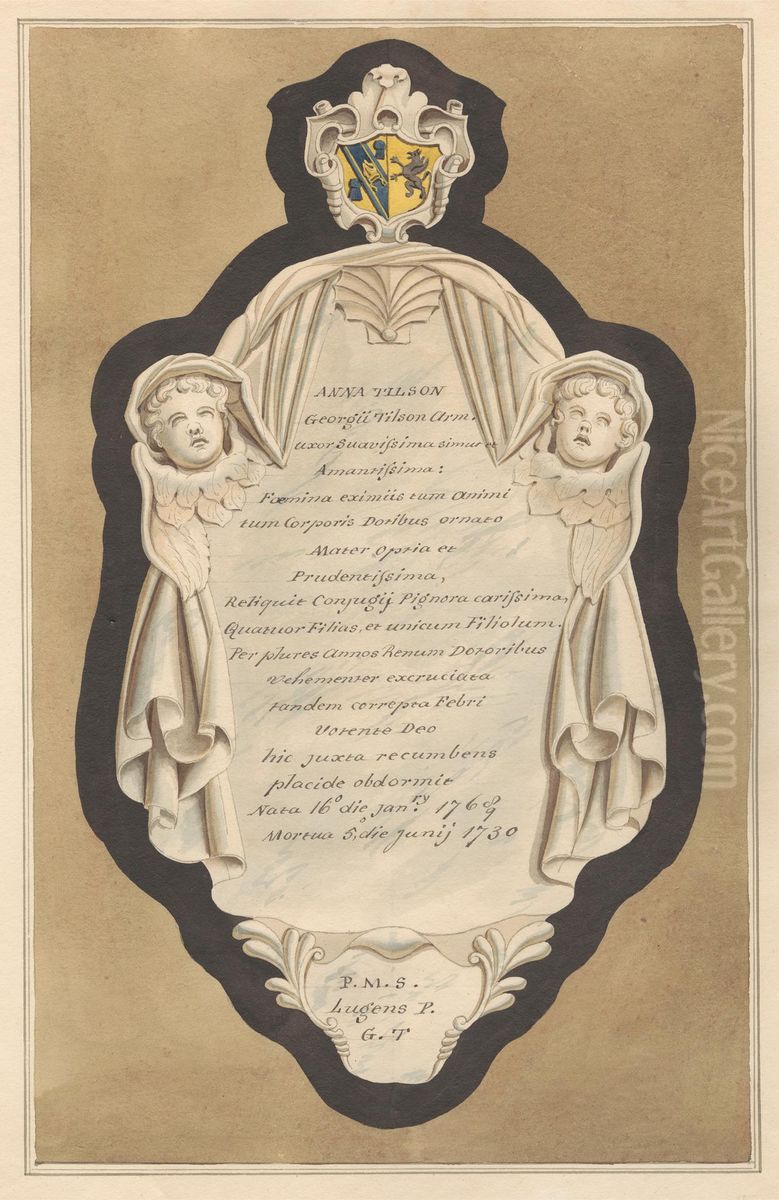 ANNA TILSON
Georgii Tilson Arm.
uxor Suavissima simur et
Amantissima:
Fœmina eximiis tum Animi
tum Corporis Dotibus ornato
Mater Optia et
Prudentissima,
Reliquit Conjugij Pignora carissima,
Quatuor Filias, et unicum Filiolum.
Per plures Annos Renum Dotoribus
vehementer excruciata
tandem correpta Febri
Votente Deo
hic juxta recumbens
placide obdormit
Nata 16º die Janry. 1768/9
Mortua 5º die Junij 1730
P. M. S.
Lugens P.
G. T
NiceArtGallery.com